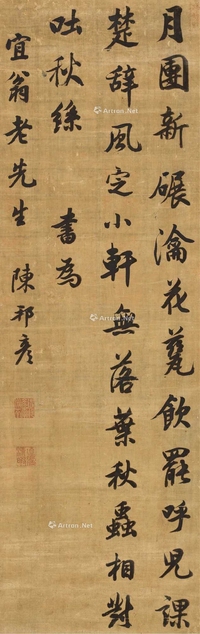 月團新碾瀹花甆飲罷呼兒課
楚辭風定小軒無落葉秋蟲相對
吐秋絲 書為
宜翁老先生 陳邦彥
Artron.Net
Artron.Net
Artron.Net